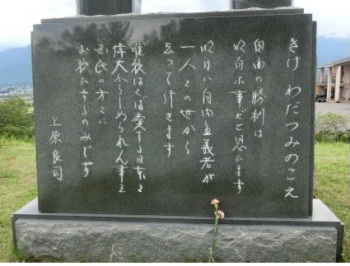 きけ わだつみのこえ
自由の勝利は
明白な事だと思ひます
明日は自由主義者が
一人この世から
去って行きます
唯願はくば愛する日本を
偉大ならしめられん事を
国民の方々に
お願ひするのみです
上原良司